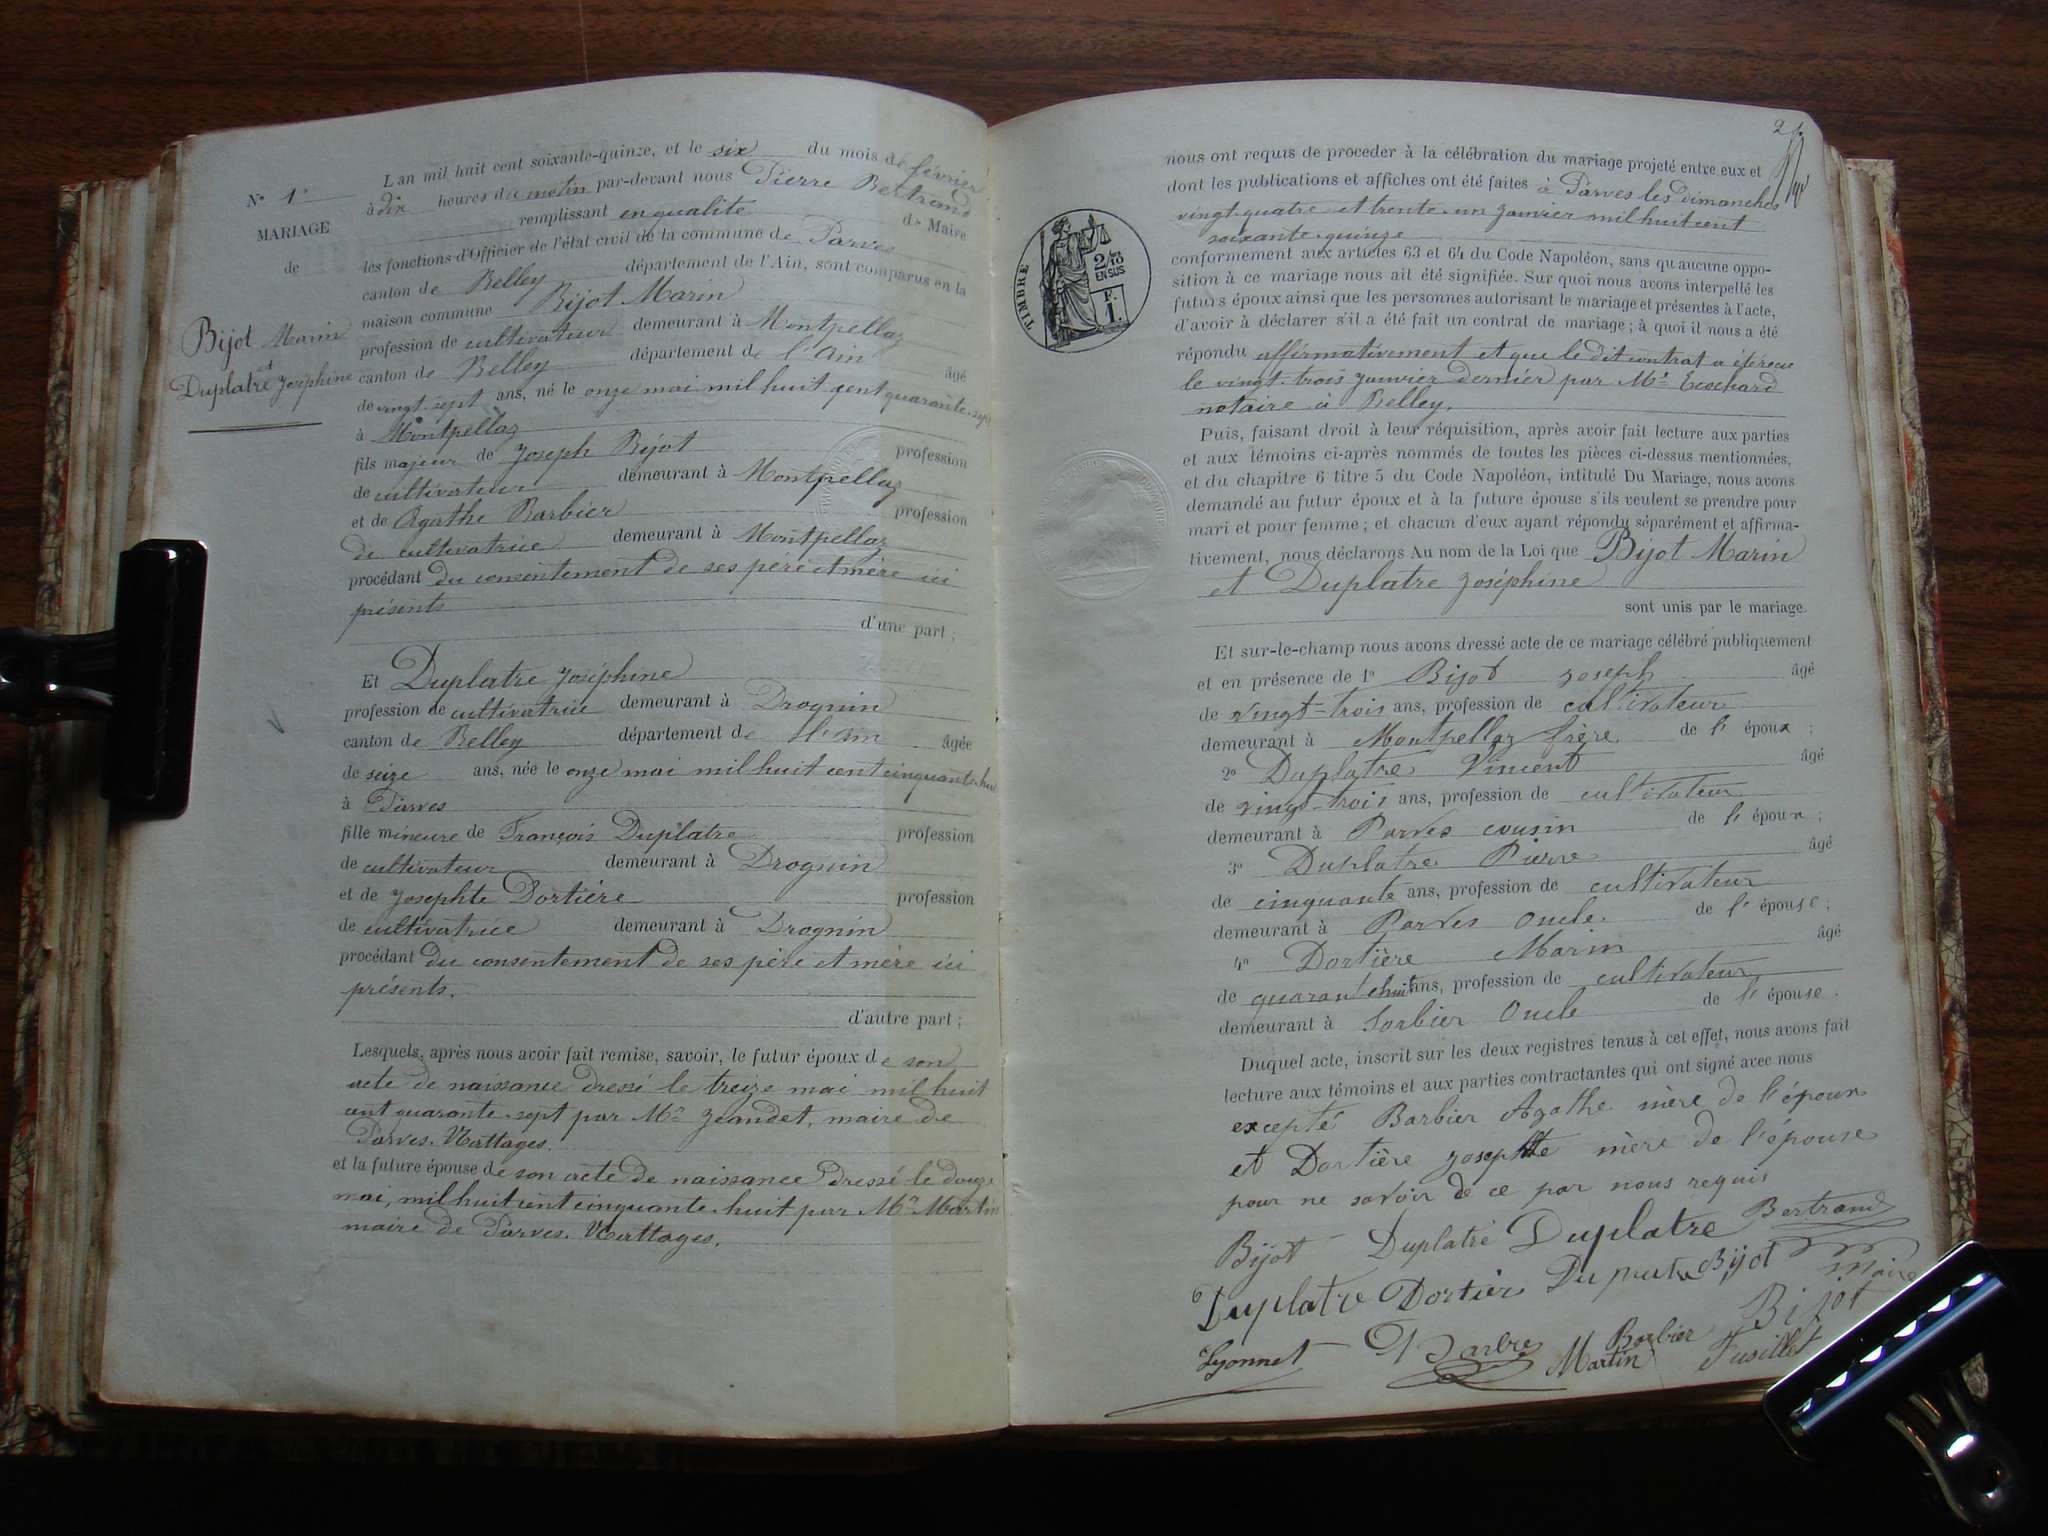 N° 1°
MARIAGE
de
Bijot Marin
et
Duplatre Joséphine
L'an mil huit cent soixante-quinze, et le six du mois de février
à dix heures du matin par-devant nous Pierre Bertrand
remplissant en qualité de Maire
les fonctions d'Officier de l'état civil de la commune de Parves
canton de Belley département de l'Ain, sont comparus en la
maison commune Bijot Marin
profession de cultivateur demeurant à Montpellaz
canton de Belley département de l'Ain âgé
de vingt-sept ans, né le onze mai mil huit cent quarante-sept
à Montpellaz
fils majeur de Joseph Bijot profession
de cultivateur demeurant à Montpellaz
et de Agathe Barbier profession
de cultivatrice demeurant à Montpellaz
procédant du consentement de ses père et mère ici
présents
d'une part ;
Et Duplatre Joséphine
profession de cultivatrice demeurant à Drognin
canton de Belley département de l'Ain âgée
de seize ans, née le onze mai mil huit cent cinquante-hui
à Parves
fille mineure de François Duplatre profession
de cultivateur demeurant à Drognin
et de Josephte Dortière profession
de cultivatrice demeurant à Drognin
procédant du consentement de ses père et mère ici
présents.
d'autre part ;
Lesquels, après nous avoir fait remise, savoir, le futur époux de son
acte de naissance dressé le treize mai mil huit
cent quarante-sept par Mr Jeandet, maire de
Parves-Nattages.
et la future épouse de son acte de naissance dressé le douze
mai, mil huit cent cinquante-huit par Mr Martin
maire de Parves-Nattages.
2
nous ont requis de proceder à la célébration du mariage projeté entre eux et
dont les publications et affiches ont été faites à Parves les dimanches
vingt-quatre et trente-un janvier mil huit cent
soixante-quinze
conformement aux articles 63 et 64 du Code Napoléon, sans qu'aucune oppo-
sition à ce mariage nous ait été signifiée. Sur quoi nous avons interpellé les
futurs époux ainsi que les personnes autorisant le mariage et présentes à l'acte,
d'avoir à déclarer s'il a été fait un contrat de mariage ; à quoi il nous a été
répondu affirmativement et que le dit contrat a été reçu
le vingt-trois janvier dernier par Me
notaire à Belley.
TIMBRE
2/10
EN SUS
F.
1.
Puis, faisant droit à leur réquisition, après avoir fait lecture aux parties
et aux témoins ci-après nommés de toutes les pièces ci-dessus mentionnées,
et du chapitre 6 titre 5 du Code Napoléon, intitulé Du Mariage, nous avons
demandé au futur époux et à la future épouse s'ils veulent se prendre pour
mari et pour femme ; et chacun d'eux ayant répondu séparément et affirma-
tivement, nous déclarons Au nom de la Loi que Bijot Marin
et Duplatre Joséphine
sont unis par le mariage.
Et sur-le-champ nous avons dressé acte de ce mariage célébré publiquement
et en présence de 1° Bijot Joseph âgé
de vingt-trois ans, profession de cultivateur
demeurant à Montpellaz frère de l' époux ;
2° Duplatre Vincent âgé
de vingt-trois ans, profession de cultivateur
demeurant à Parves cousin de l' époux ;
3° Duplatre Pierre âgé
de cinquante ans, profession de cultivateur
demeurant à Parves Oncle. de l' épouse ;
4° Dortière Marin âgé
de quarante huit ans, profession de cultivateur
demeurant à Sorbier Oncle de l' épouse.
Duquel acte, inscrit sur les deux registres tenus à cet effet, nous avons fait
lecture aux témoins et aux parties contractantes qui ont signé avec nous
excepté Barbier Agathe mère de l'époux
et Dortière Josephte mère de l'épouse
pour ne savoir de ce par nous requis
Bijot Duplatre Duplatre Bertrand
Maire
Duplatre Dortier Bijot
Bijot
Lyonnet Barbier
Martin Fusillet